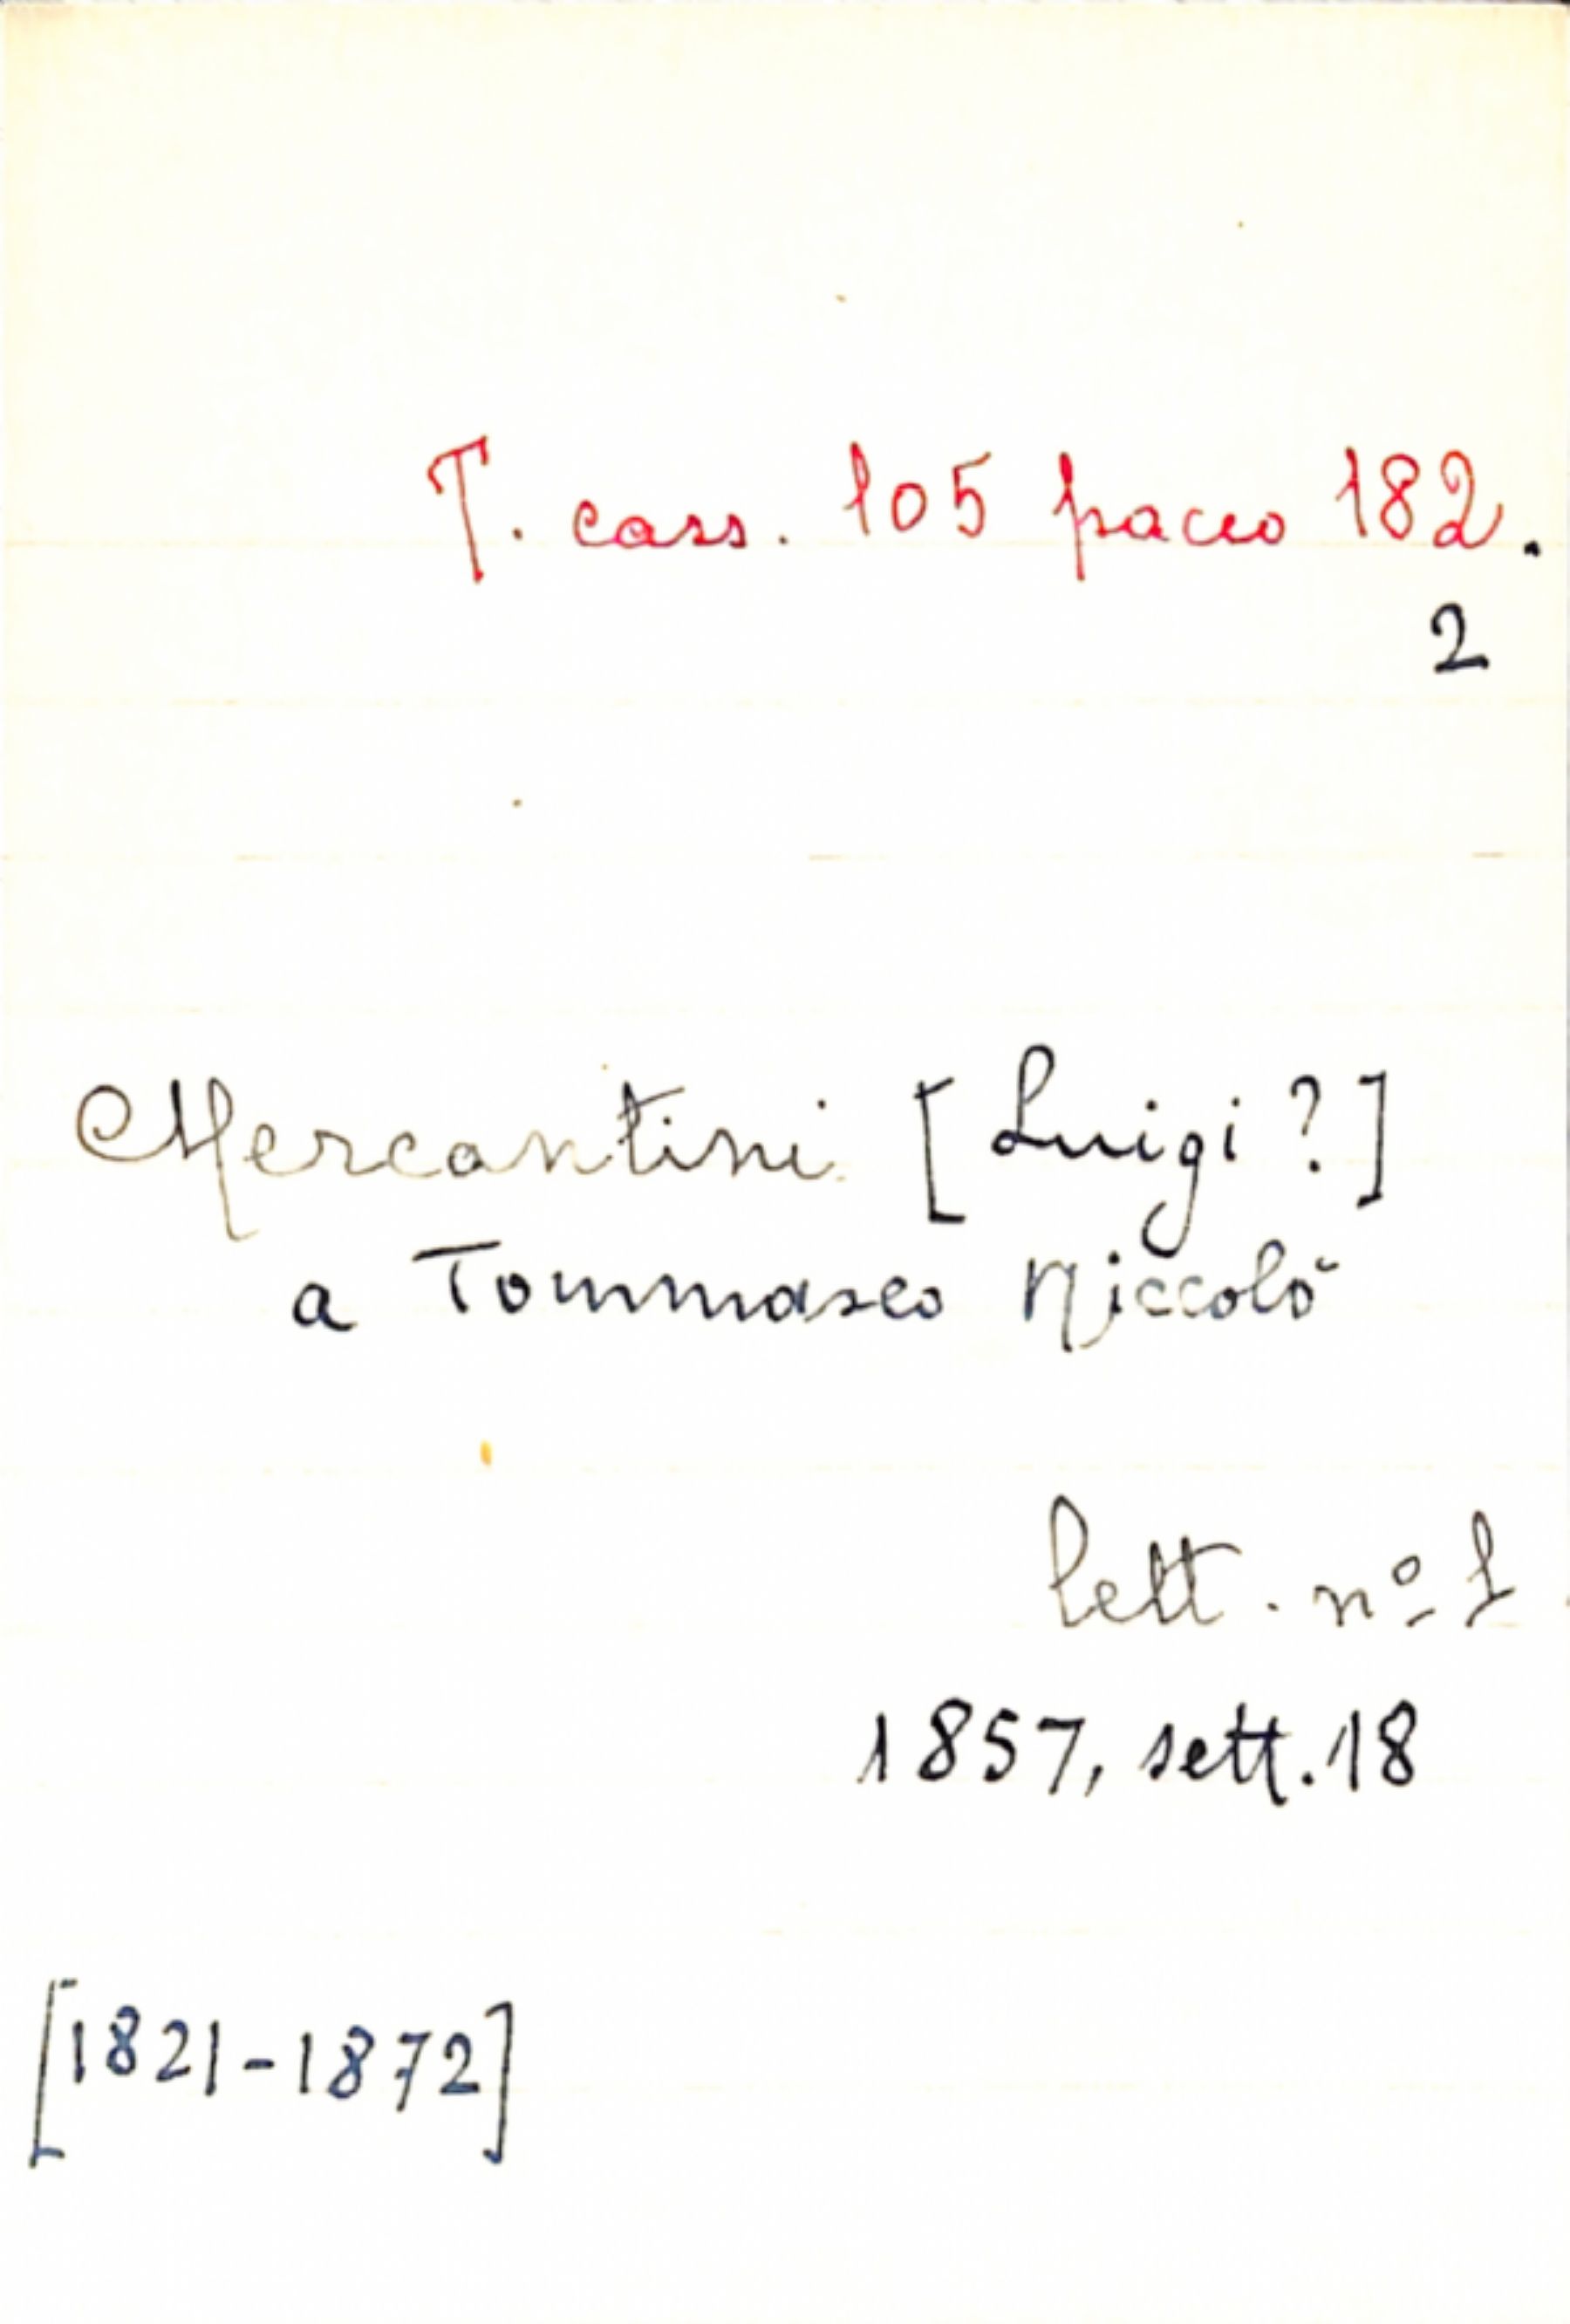 T. cass. 105 pacco 182.
2
Mercantini [Luigi?]
a Tommaseo Niccolò
lett. nº 1
1857, sett. 18
[1821-1872]